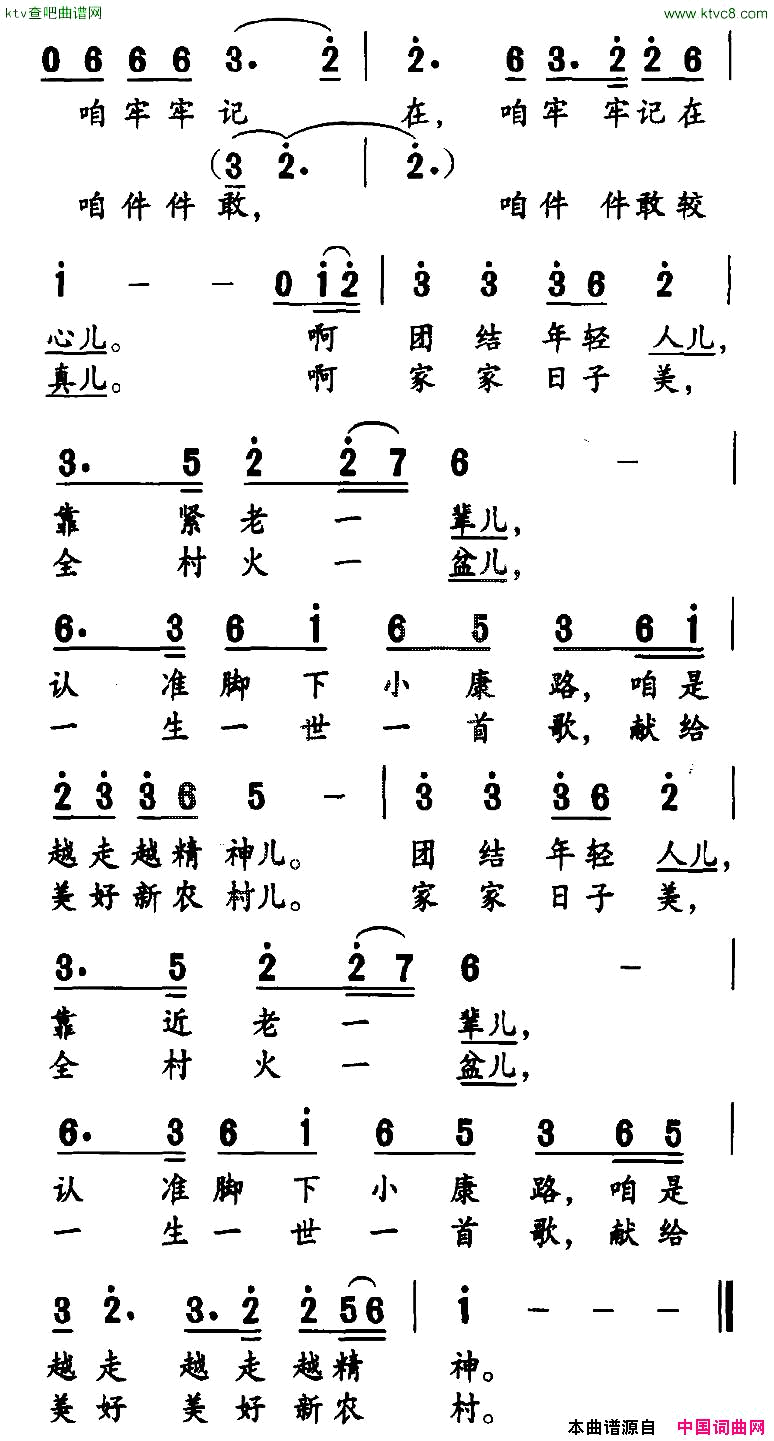 ktv查吧曲谱网 www.ktvc8.com
0 6 6 6 3. 2̇ | 2̇. 6 3. 2̇ 2̇ 6 |
咱牢牢记 在, 咱牢 牢记在
(3 2̇. | 2̇.)
咱件件敢, 咱件 件敢较
1̇ - - 0 1̇ 2̇ | 3̇ 3̇ 3̇ 6 2̇ |
心儿。 啊 团结年轻 人儿,
真儿。 啊 家家日子 美,
3. 5 2̇ 2̇ 7 6 - |
靠 紧老一 辈儿,
全 村火一 盆儿,
6. 3 6 1̇ 6 5 3 6 1̇ |
认 准脚下小康 路, 咱是
一 生一世一首 歌, 献给
2̇ 3̇ 3̇ 6 5 - | 3̇ 3̇ 3̇ 6 2̇ |
越走越精神儿。 团结年轻 人儿,
美好新农村儿。 家家日子 美,
3. 5 2̇ 2̇ 7 6 - |
靠 近老一 辈儿,
全 村火一 盆儿,
6. 3 6 1̇ 6 5 3 6 5 |
认 准脚下小康 路, 咱是
一 生一世一首 歌, 献给
3 2̇. 3. 2̇ 2̇ 5 6 | 1̇ - - -
越走 越走越精 神。
美好 美好新农 村。
本曲谱源自 中国词曲网